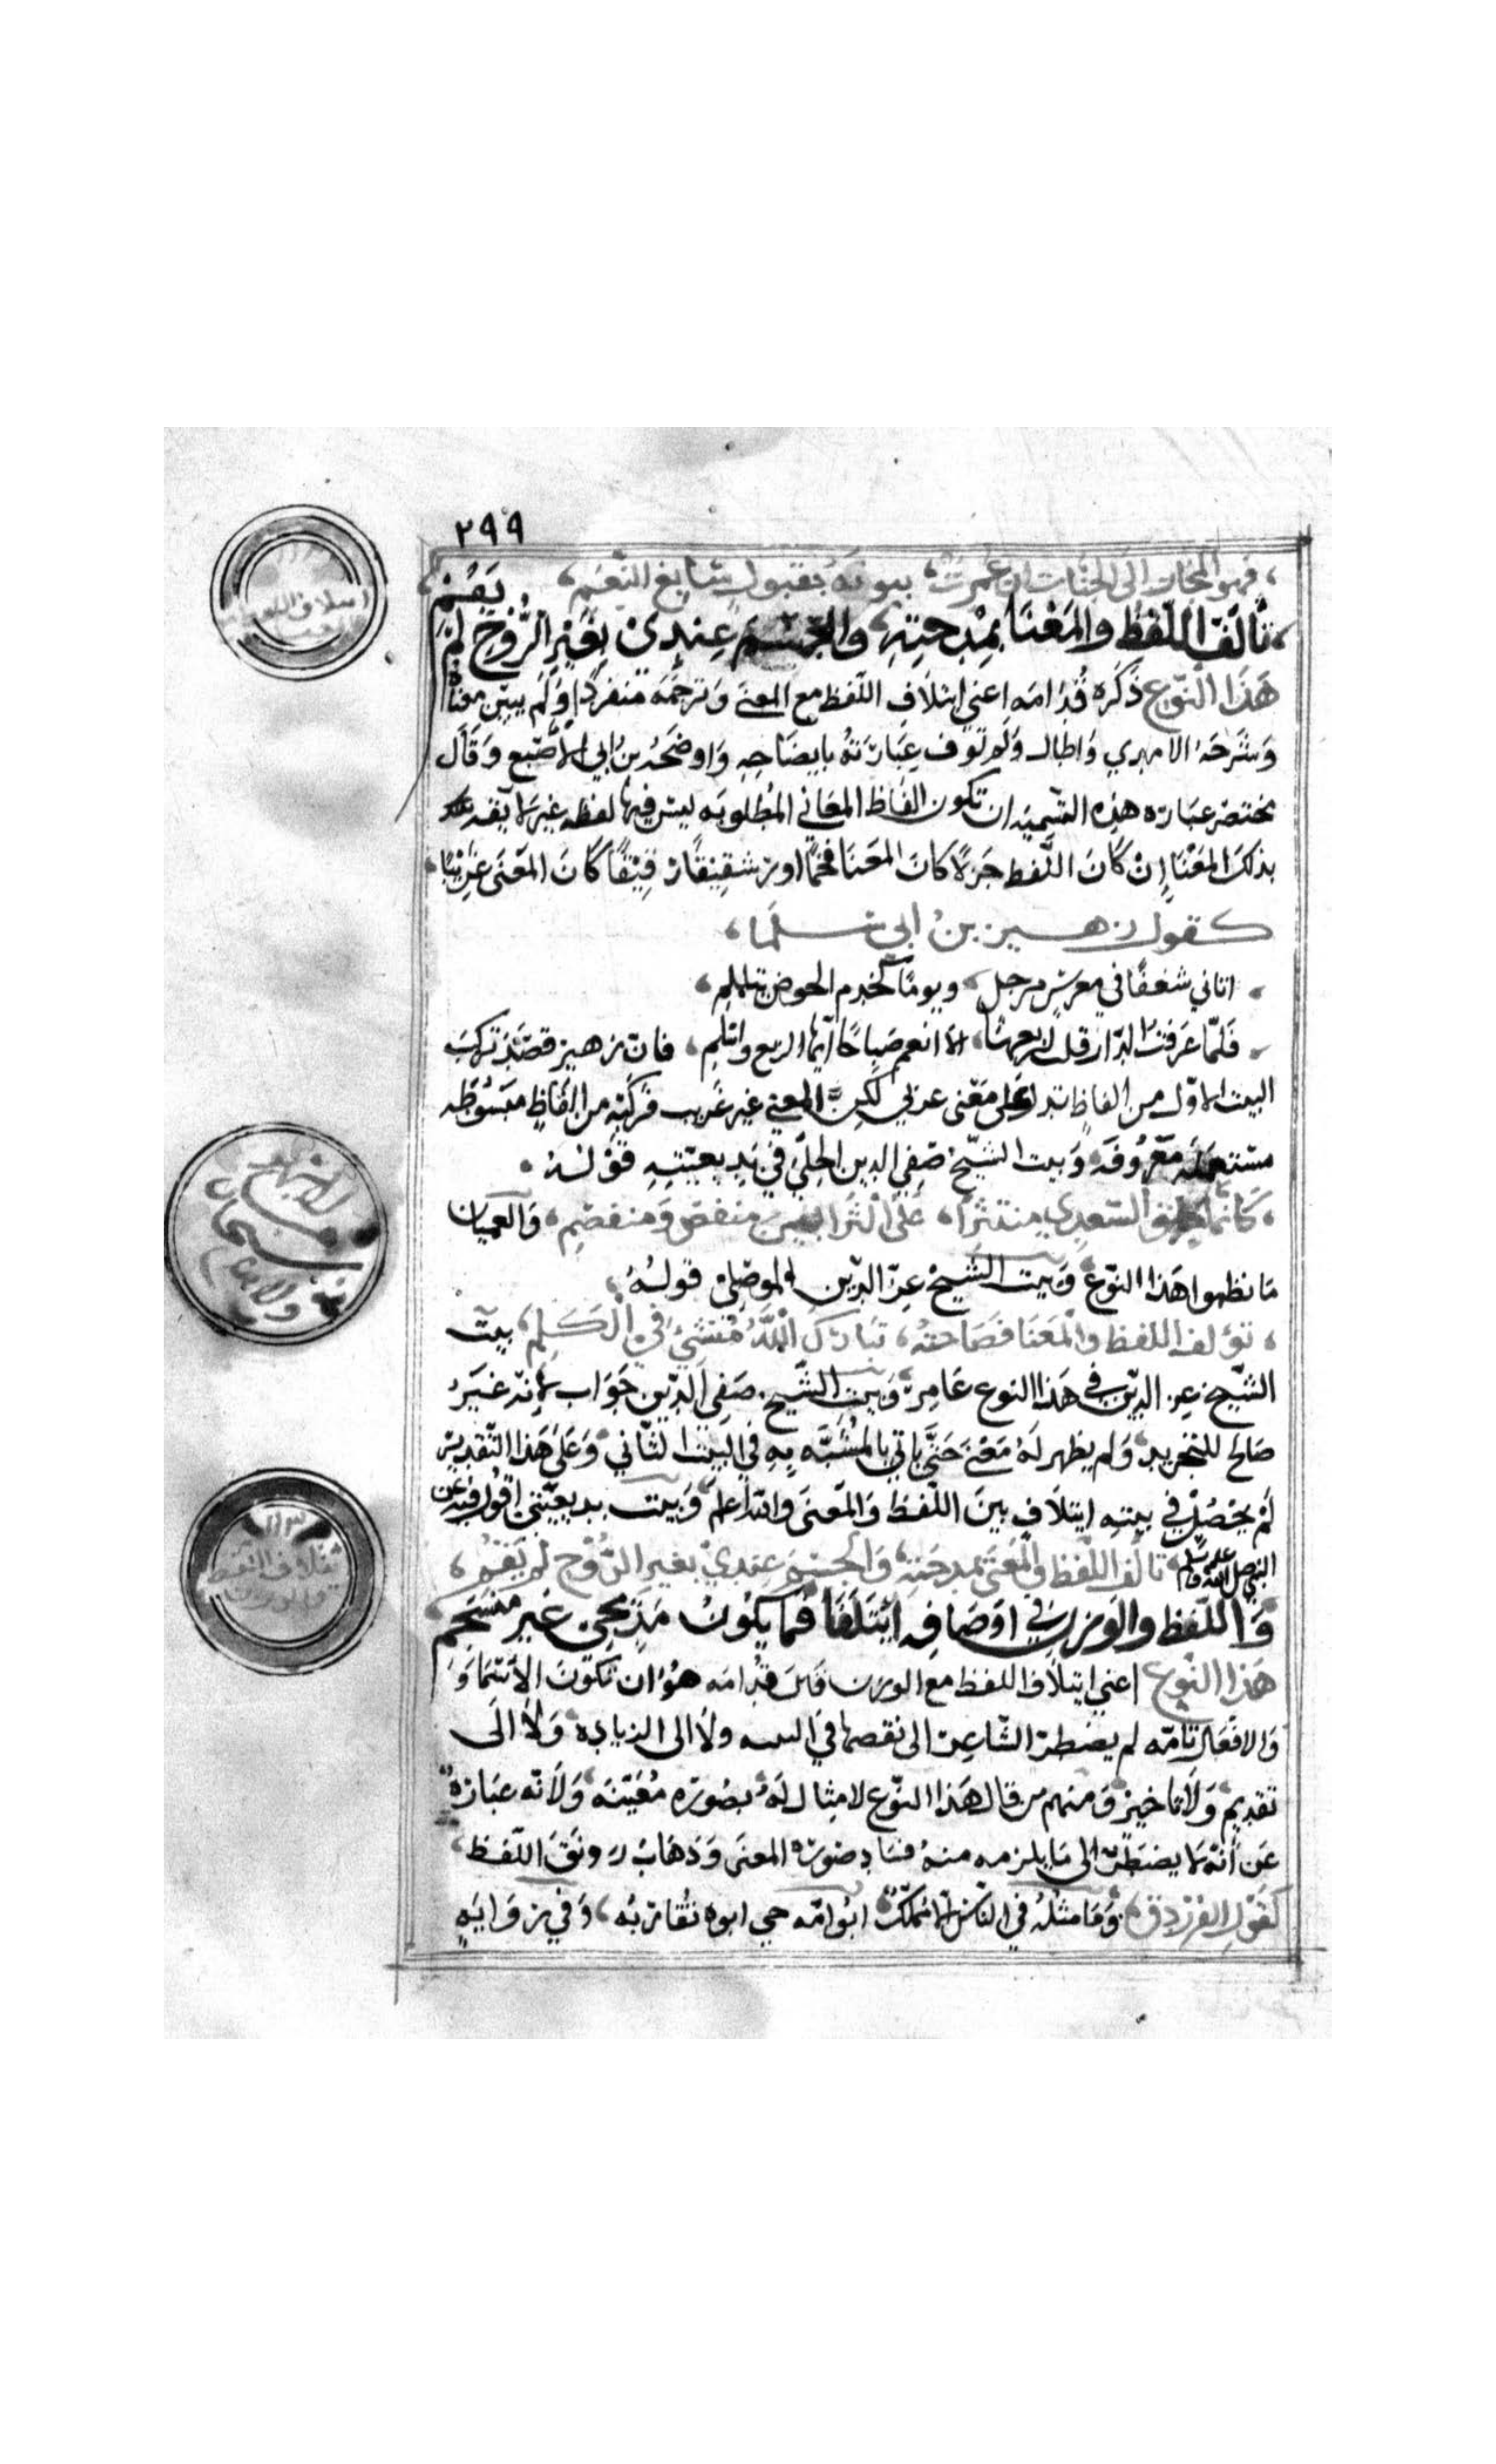 ٢٩٩
، فهو المجاز الى الجنات ان عمرت ، بيوته بقبول سابغ النعم ،
يقم ،
، تالف اللفظ والمعنا بمدحته ، والجسم عندي بغير الروح لم
هذا النوع ذكره قدامه اعني ايتلاف اللفظ مع المعنى وترجمه منفردا ولم يبين معناه
وشرحه الامدي واطال ولم توف عبارته بايضاحه واوضحه بن ابي الاصبع وقال
مختصر عباره هذه التسميه ان تكون الفاظ المعاني المطلوبه ليس فيها لفظه غير
بذلك المعنا ان كان اللفظ جزلا كان المعنا فخما او رشيقا كان المعنى غريبا ،
كقول زهير بن ابي سلما ،
، اثافي سفعا في معرس مرجل ، ويوما كخدم الحوض يتثلم ،
، فلما عرفت الدار قلت لربعها ، الا انعم صباحا ايها الربع واسلم ، فان زهير قصد تركيب
البيت الاول من الفاظ تدل على معنى عربي لكن المعنى غير غريب فركبه من الفاظ متوسطه
مستعمله معروفه وبيت الشيخ صفي الدين الحلي في بديعيته قوله ،
، كانما السعدي منتثرا ، على الثرا بين منفض ومنفصم ، والعميان
ما نظموا هذا النوع وبيت الشيخ عز الدين الموصلي قوله ،
، تؤلف اللفظ والمعنا فصاحته ، تبارك الله منشئ في الكلم ، بيت
الشيخ عز الدين في هذا النوع عامر وبيت الشيخ صفي الدين جواب لانه غير
صالح للتجريد ولم يظهر له معنى حتى ياتي بالمشبه به في البيت الثاني وعلى هذا التقدير
لم يحصل في بيته ايتلاف بين اللفظ والمعنى والله اعلم وبيت بديعيتي اقول فيه عن
النبي صلى الله عليه وسلم ، تالف اللفظ والمعنى بمدحته ، والجسم عندي بغير الروح لم يقم ،
واللفظ والوزن في اوصافه ائتلفا فما يكون مديحي غير منسجم
هذا النوع اعني ايتلاف اللفظ مع الوزن قال قدامه هو ان تكون الاسما و
والافعال تامه لم يضطر الشاعر الى نقصها في البيت ولا الى الزياده ولا الى
تقديم ولا تاخير ومنهم من قال هذا النوع لا مثال له بصوره معينه ولانه عباره
عن انه لا يضطر الى ما يلزمه منه فساد صوره المعنى وذهاب رونق اللفظ ،
كقول الفرزدق ، وما مثله في الناس الا مملكا ابو امه حي ابوه يقاربه ، وفي رواية
ايتلاف اللفظ
١١٣
ايتلاف اللفظ
والوزن